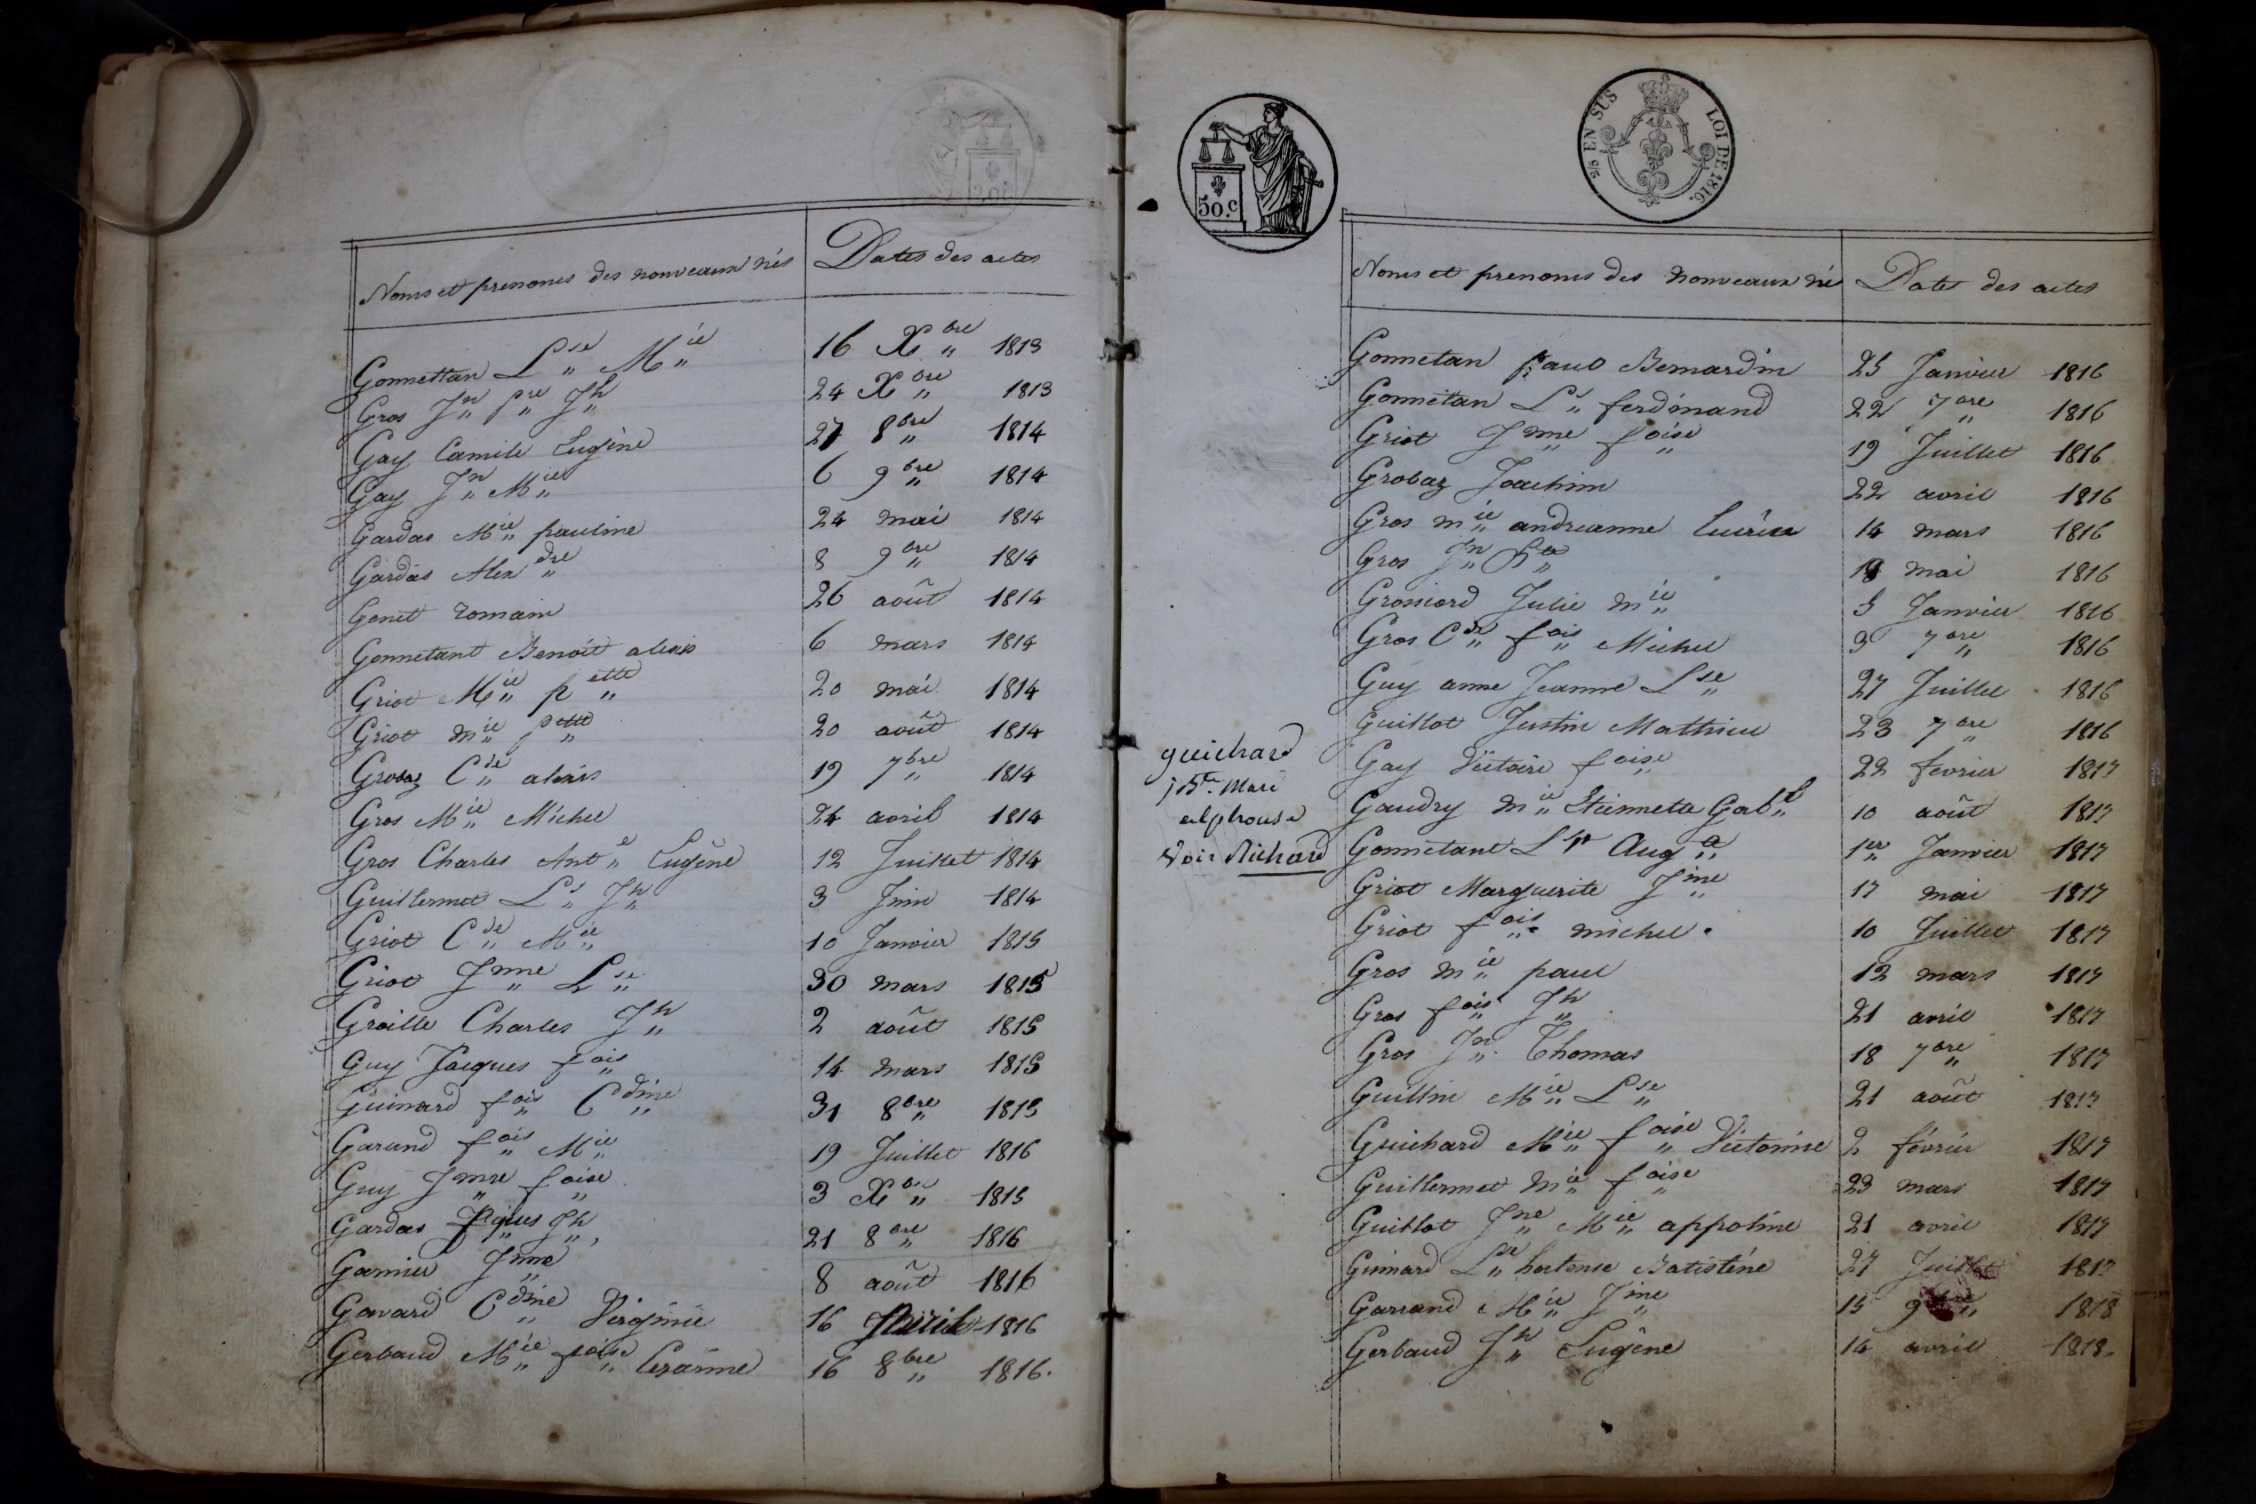 Noms et prenoms des nouveaux nés Dates des actes
Gonnettan Lse Mie 16 Xbre 1813
Gros Jn pre Jh 24 Xbre 1813
Gay Camile Eugène 27 8bre 1814
Gay Jn Mie 6 9bre 1814
Gardas Mie pauline 24 mai 1814
Gardas Alexdre 8 9bre 1814
Gonet romain 26 août 1814
Gonnetant Benoit alexis 6 mars 1814
Griot Mie pette 20 mai 1814
Griot mie pette 20 août 1814
Grobaz Cde alexis 19 7bre 1814
Gros Mie Michel 24 avril 1814
Gros Charles Ante Eugêne 12 Juillet 1814
Guillermet Ls Jh 3 Juin 1814
Griot Cde Mie 10 Janvier 1815
Griot Jnne Lse 30 mars 1815
Groille Charles Jh 2 août 1815
Guy Jacques fois 14 mars 1815
Guinard fois Cdine 31 8bre 1815
Garand fois Mie 19 Juillet 1816
Guy Jnne foise 3 Xbre 1815
Gardas Jques Jh 21 8bre 1816
Garnier Jnne 8 août 1816
Gavard Cdine Virginie 16 1816
Gerbaud Mie foise Cesarine 16 8bre 1816.
50.c
EN SUS LOI DE 1816.
Noms et prenoms des nouveaux né Dates des actes
Gonnetan paul Bernardin 25 Janvier 1816
Gonnetan Ls ferdinand 22 7bre 1816
Griot Jnne foise 19 Juillet 1816
Grobaz Joachim 22 avril 1816
Gros mie andreanne 14 mars 1816
Gros Jn mai 1816
Grossiord Julie mie 5 Janvier 1816
Gros Cde fois Michel 3 7bre 1816
Guy anne Jeanne Lse 27 Juillet 1816
Guillot Justin Mathieu 23 7bre 1816
Gay Victoire foise 22 fevrier 1817
Gaudry mie Etiennette Gabl 10 août 1817
Gonnetant Lse Auga 1er Janvier 1817
Griot Marguerite Jine 17 mai 1817
Griot fois michel 10 Juillet 1817
Gros mie paul 12 mars 1817
Gros fois Jh 21 avril 1817
Gros Jn Thomas 18 7bre 1817
Guillin Mie Lse 21 août 1817
Guichard Mie foise Victorine 2 février 1817
Guillermet mie foise 23 mars 1817
Guillot Jne Mie appoline 21 avril 1817
Guinard Le hortense Batistine 27 Juillet 1817
Garrand Mie Jine 15 9bre 1818
Gerbaud Jh Eugêne 14 avril 1818.
guichard
jBte Marie
alphonse
Voir Richard